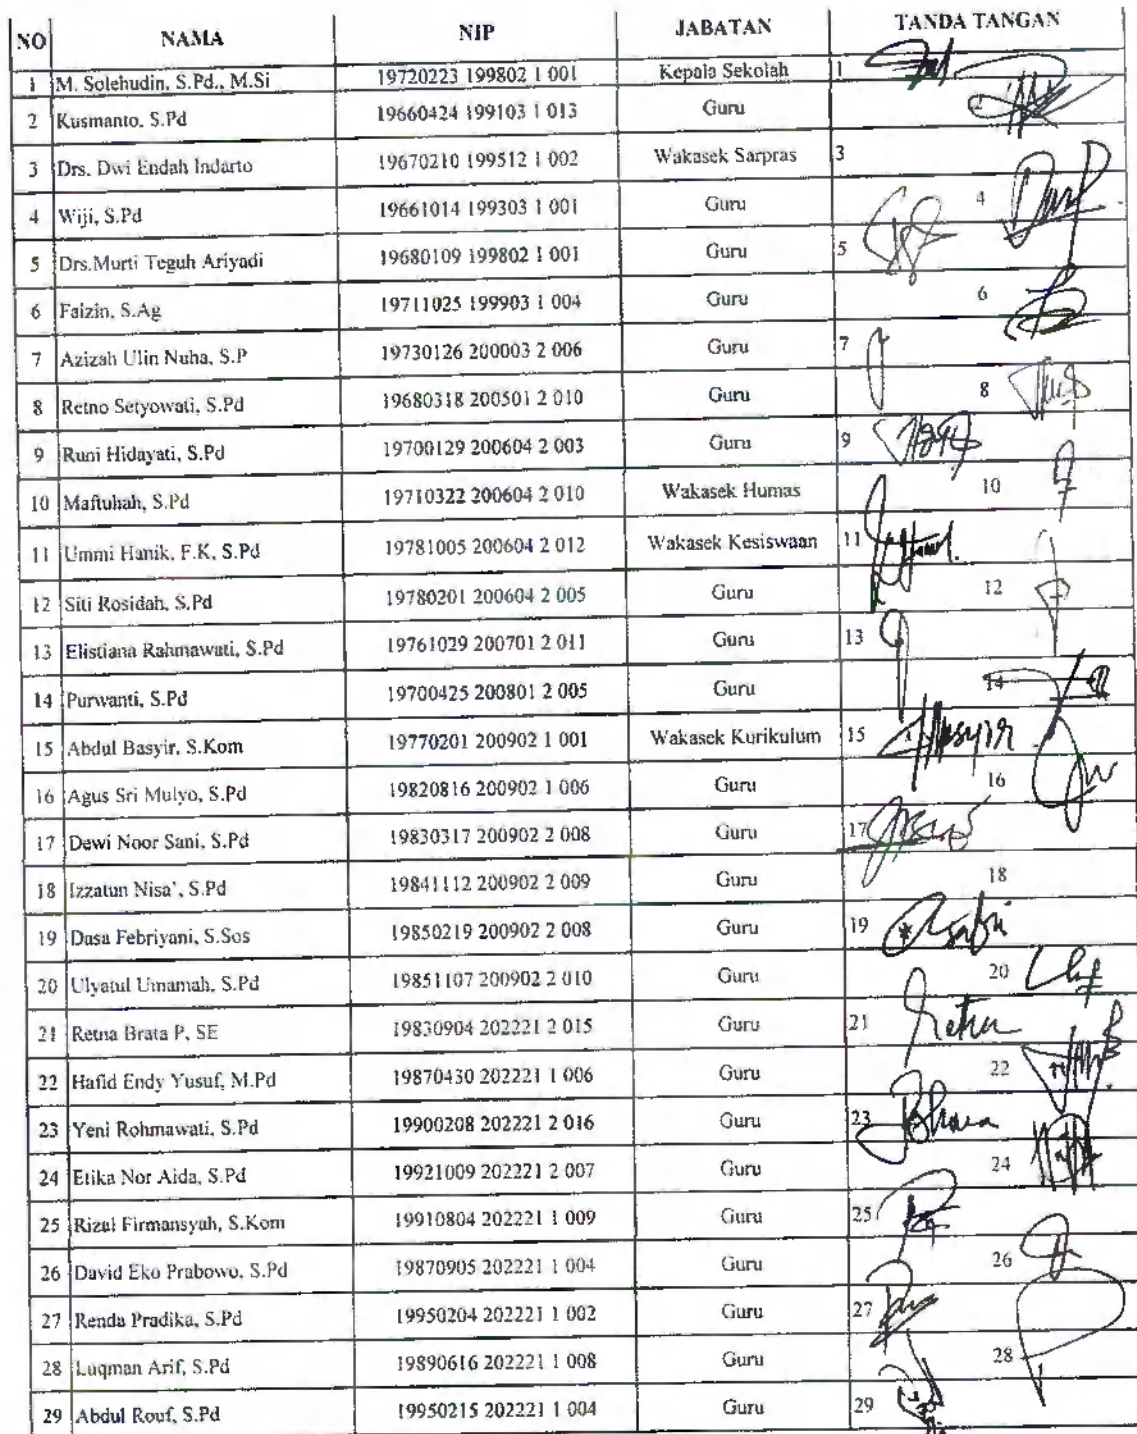 NO NAMA NIP JABATAN TANDA TANGAN
1 M. Solehudin, S.Pd., M.Si 19720223 199802 1 001 Kepala Sekolah 1
2 Kusmanto, S.Pd 19660424 199103 1 013 Guru 2
3 Drs. Dwi Endah Indarto 19670210 199512 1 002 Wakasek Sarpras 3
4 Wiji, S.Pd 19661014 199303 1 001 Guru 4
5 Drs.Murti Teguh Ariyadi 19680109 199802 1 001 Guru 5
6 Faizin, S.Ag 19711025 199903 1 004 Guru 6
7 Azizah Ulin Nuha, S.P 19730126 200003 2 006 Guru 7
8 Retno Setyowati, S.Pd 19680318 200501 2 010 Guru 8
9 Runi Hidayati, S.Pd 19700129 200604 2 003 Guru 9
10 Maftuhah, S.Pd 19710322 200604 2 010 Wakasek Humas 10
11 Ummi Hanik, F.K, S.Pd 19781005 200604 2 012 Wakasek Kesiswaan 11
12 Siti Rosidah, S.Pd 19780201 200604 2 005 Guru 12
13 Elistiana Rahmawati, S.Pd 19761029 200701 2 011 Guru 13
14 Purwanti, S.Pd 19700425 200801 2 005 Guru 14
15 Abdul Basyir, S.Kom 19770201 200902 1 001 Wakasek Kurikulum 15
16 Agus Sri Mulyo, S.Pd 19820816 200902 1 006 Guru 16
17 Dewi Noor Sani, S.Pd 19830317 200902 2 008 Guru 17
18 Izzatun Nisa', S.Pd 19841112 200902 2 009 Guru 18
19 Dasa Febriyani, S.Sos 19850219 200902 2 008 Guru 19
20 Ulyatul Umamah, S.Pd 19851107 200902 2 010 Guru 20
21 Retna Brata P, SE 19830904 202221 2 015 Guru 21
22 Hafid Endy Yusuf, M.Pd 19870430 202221 1 006 Guru 22
23 Yeni Rohmawati, S.Pd 19900208 202221 2 016 Guru 23
24 Etika Nor Aida, S.Pd 19921009 202221 2 007 Guru 24
25 Rizal Firmansyah, S.Kom 19910804 202221 1 009 Guru 25
26 David Eko Prabowo, S.Pd 19870905 202221 1 004 Guru 26
27 Renda Pradika, S.Pd 19950204 202221 1 002 Guru 27
28 Luqman Arif, S.Pd 19890616 202221 1 008 Guru 28
29 Abdul Rouf, S.Pd 19950215 202221 1 004 Guru 29